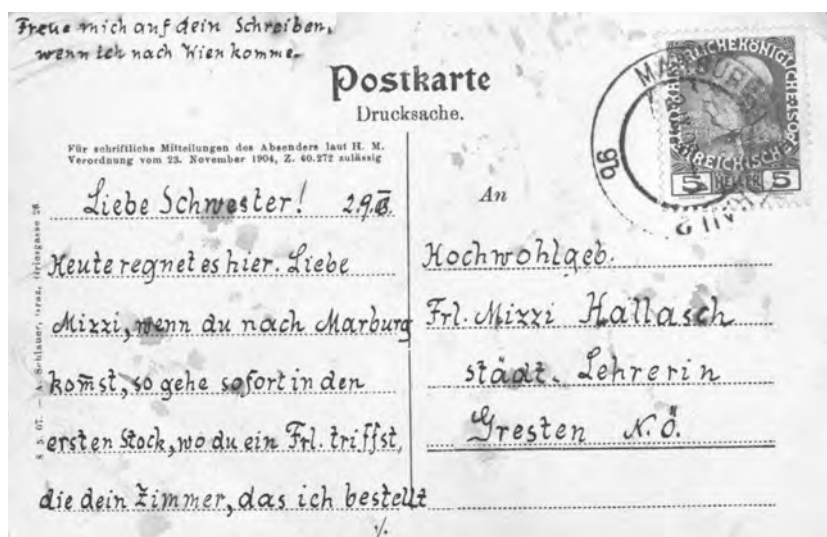 Freue mich auf dein Schreiben,
wenn ich nach Wien komme.
Postkarte
Drucksache.
Für schriftliche Mitteilungen des Absenders laut H. M.
Verordnung vom 23. November 1904, Z. 60.272 zulässig
Liebe Schwester! 2.9.
Heute regnet es hier. Liebe
Mizzi, wenn du nach Marburg
kom̄st, so gehe sofort in den
ersten Stock, wo du ein Frl. triffst,
die dein Zimmer, das ich bestellt
./.
An
Hochwohlgeb.
Frl. Mizzi Hallasch
städt. Lehrerin
Gresten N.Ö.
5 HELLER 5
MARBURG
9b
A. Schlauer, Graz,